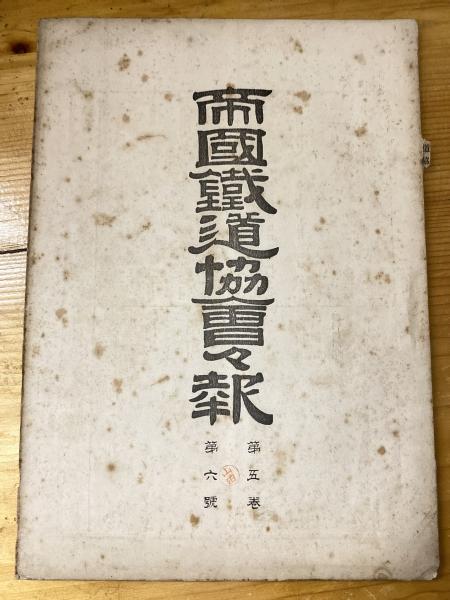 帝國鐵道協會々報
第五卷
第六號